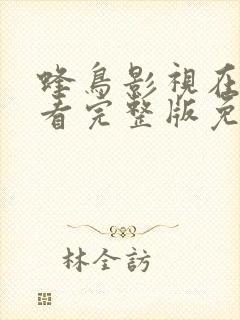 蜂鳥影視在
看完整版免
林全訪